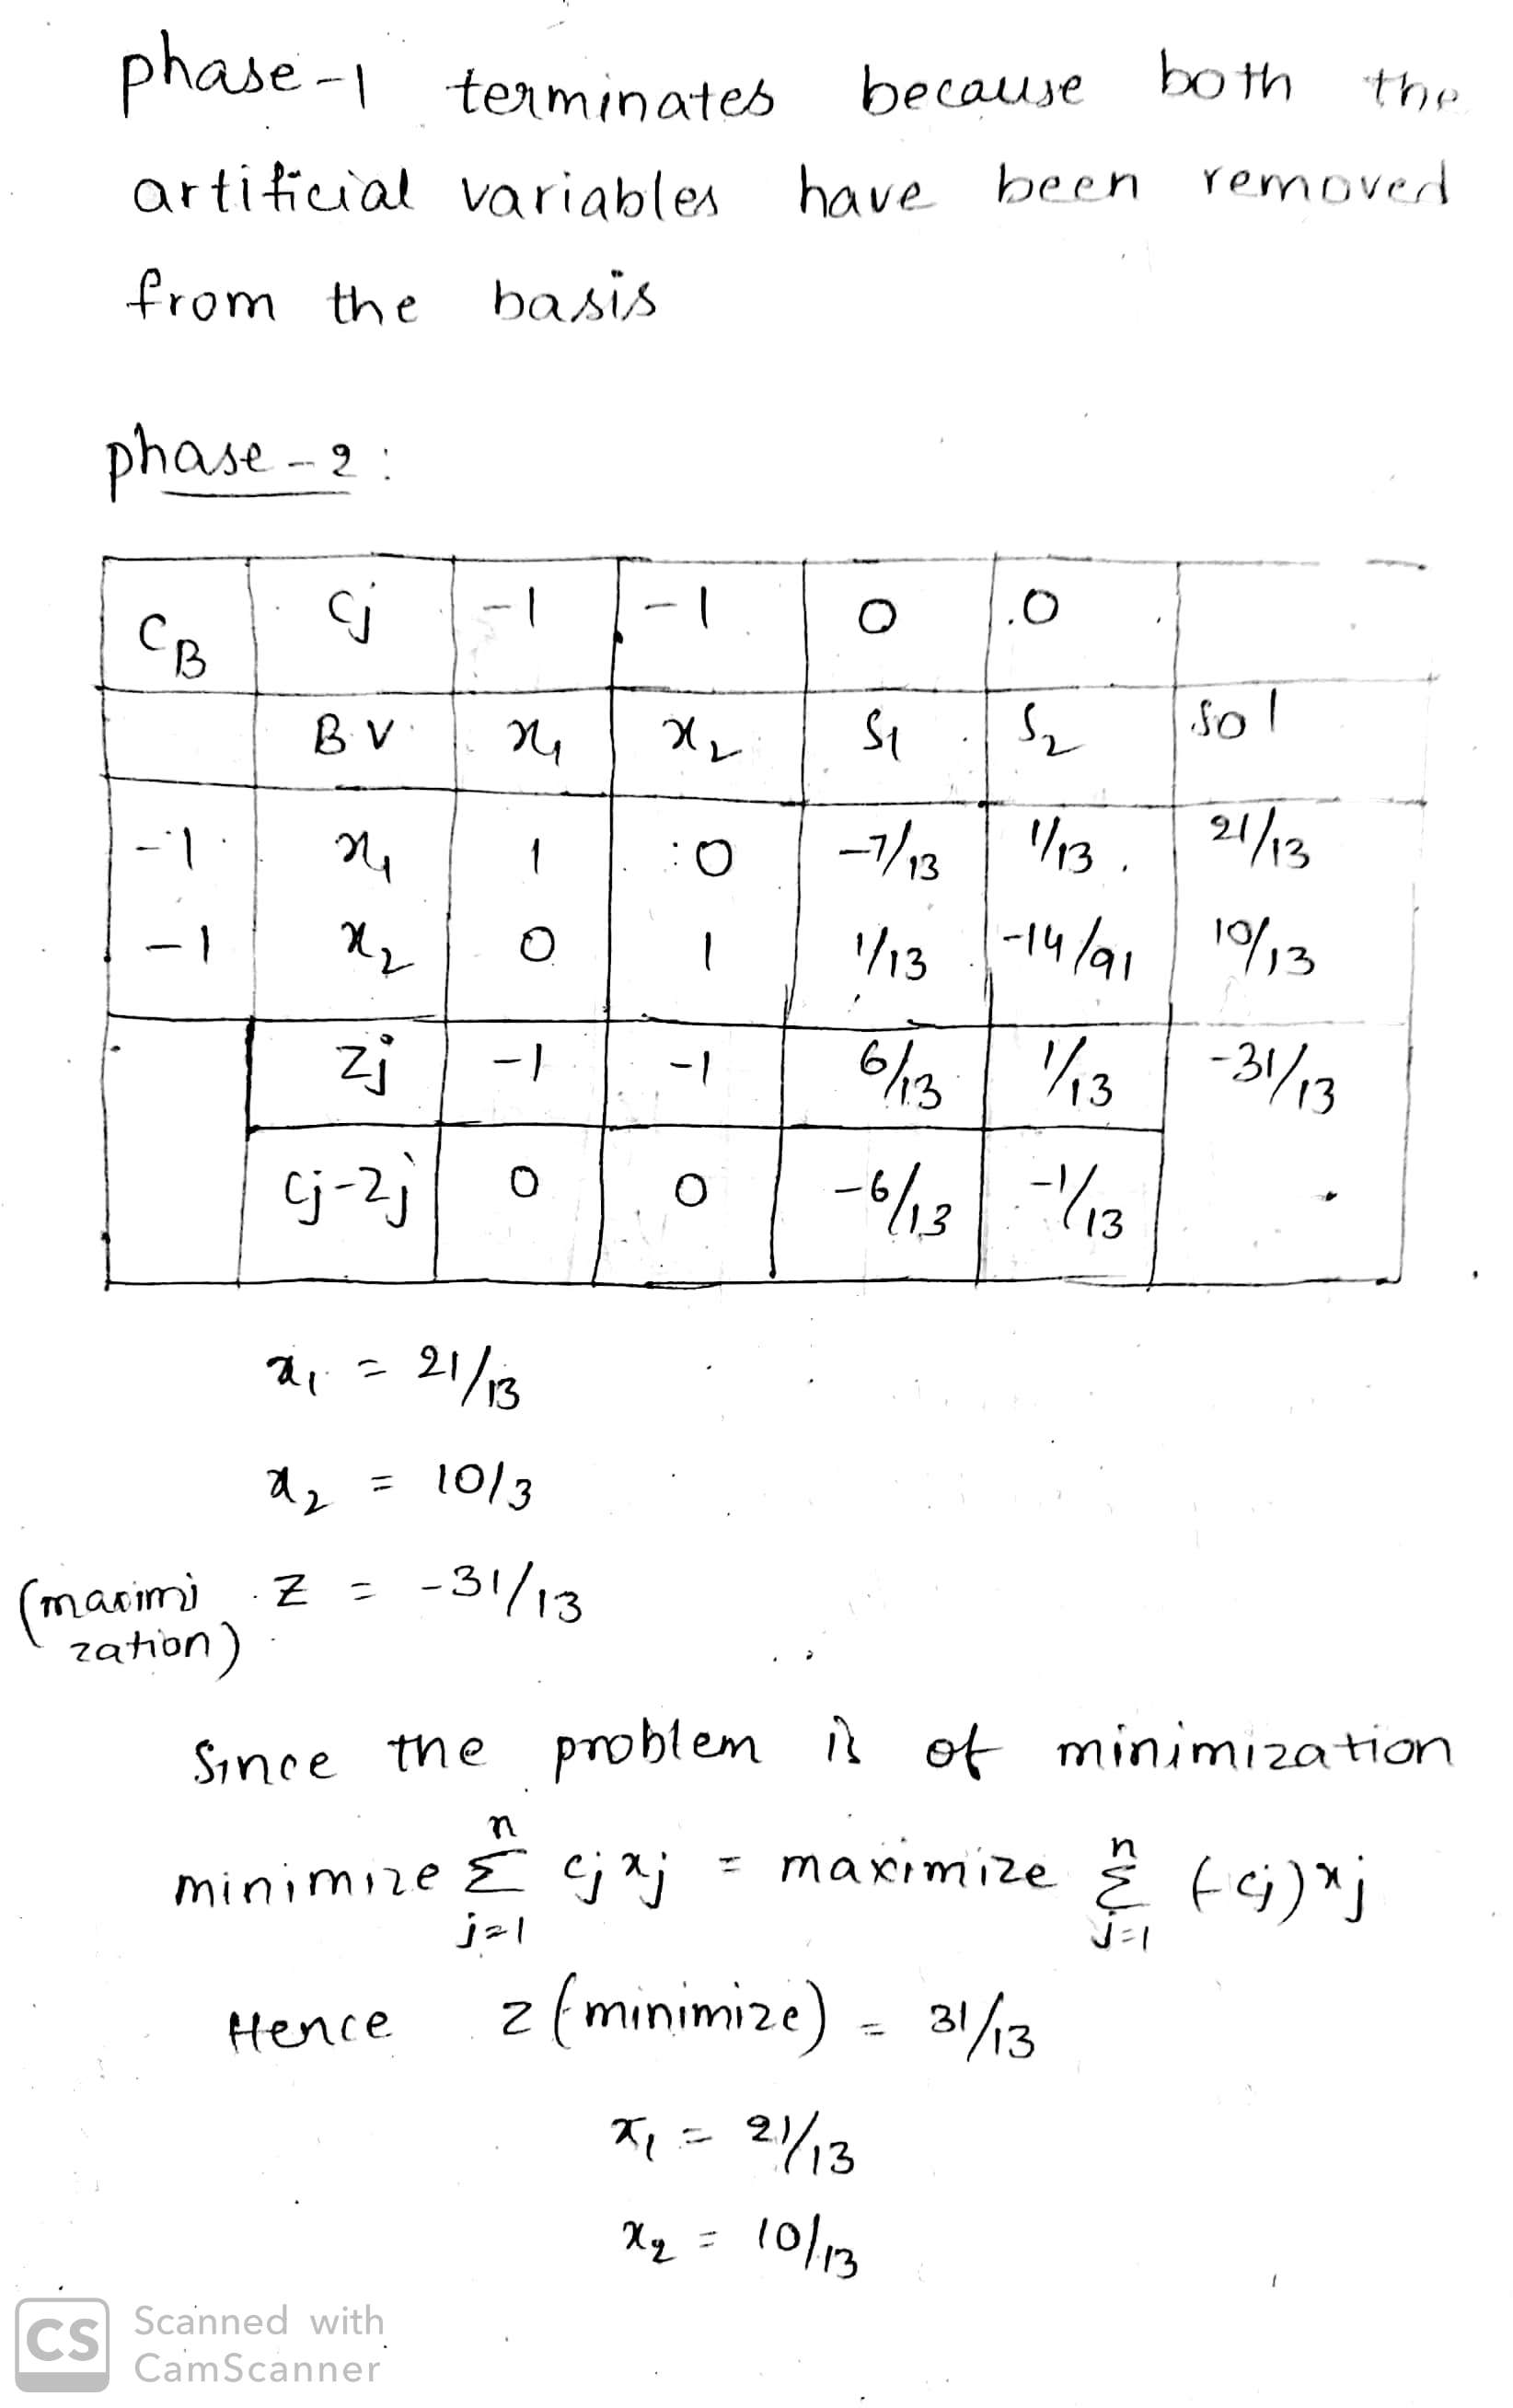 phase-1 terminates because both the
artificial variables have been removed
from the basis
phase-2:
CB Cj -1 -1 0 0
B.V. x1 x2 S1 S2 sol
-1 x1 1 0 -7/13 1/13 21/13
-1 x2 0 1 1/13 -14/91 10/13
Zj -1 -1 6/13 1/13 -31/13
Cj-Zj 0 0 -6/13 -1/13
x1 = 21/13
x2 = 10/3
(maximi Z = -31/13
zation)
Since the problem is of minimization
minimize n Σ j=1 cj xj = maximize n Σ j=1 (-cj) xj
Hence z(minimize) = 31/13
x1 = 21/13
x2 = 10/13
CS Scanned with
CamScanner